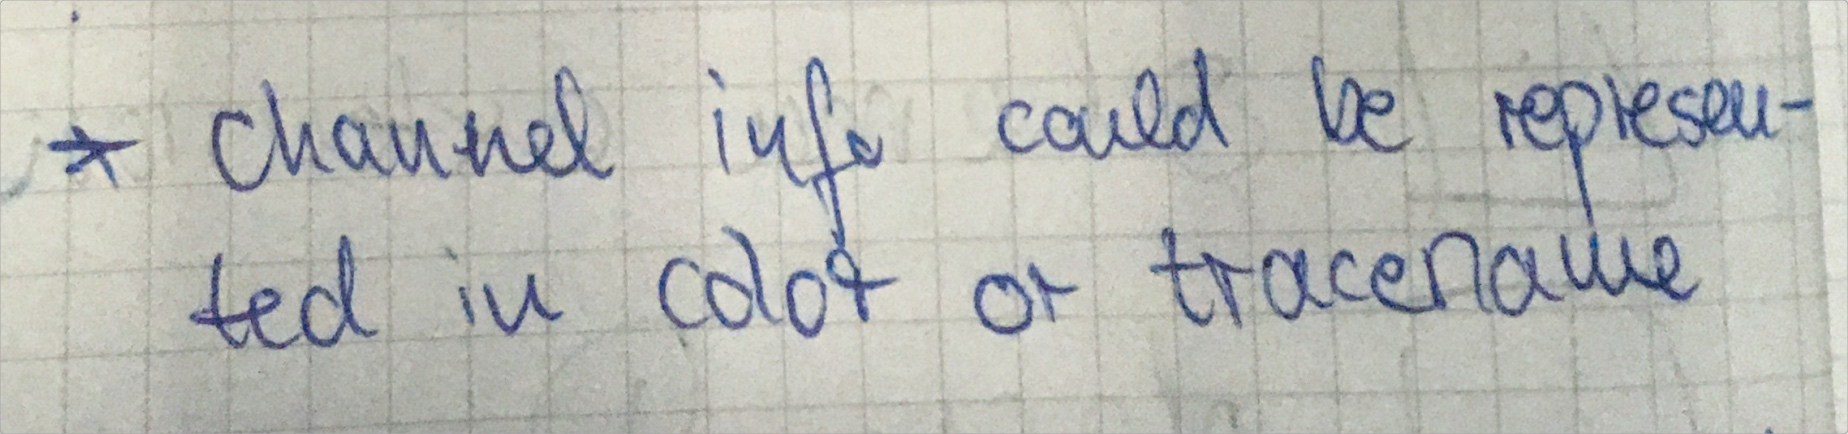 → Channel info could be represen-
ted in color or tracename